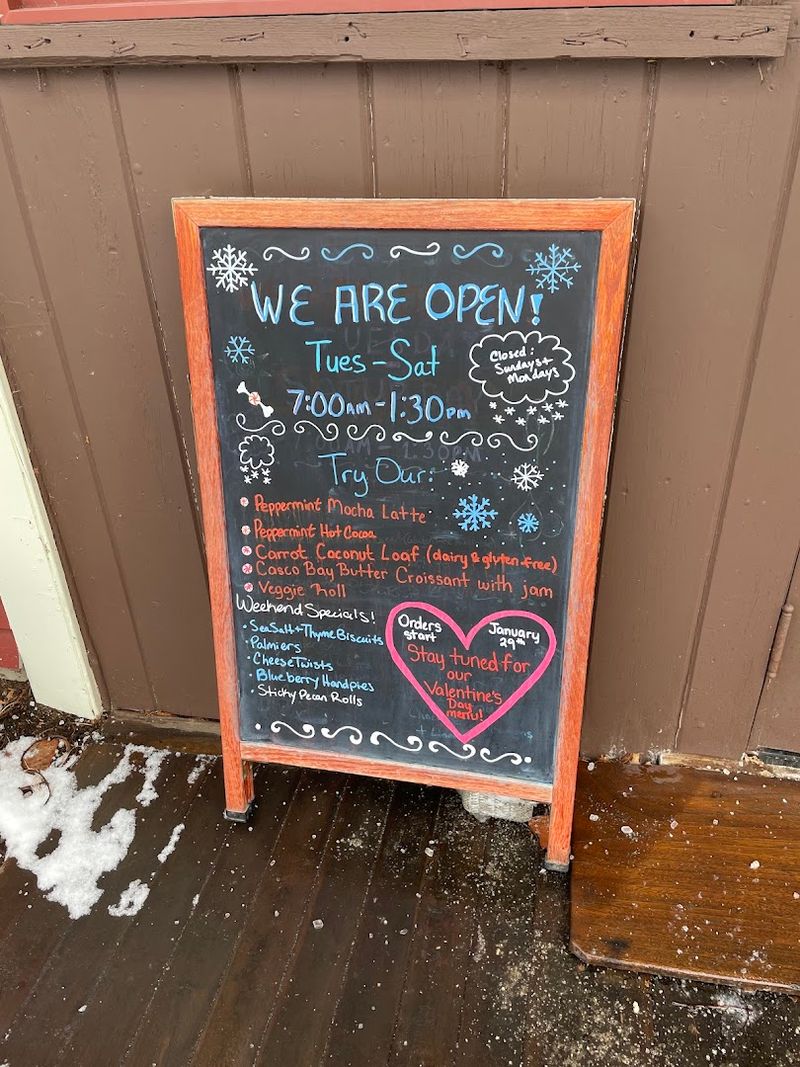 WE ARE OPEN!
Tues - Sat
Closed:
Sundays +
Mondays
7:00AM - 1:30PM
Try Our:
Peppermint Mocha Latte
Peppermint Hot Cocoa
Carrot Coconut Loaf (dairy & gluten-free)
Casco Bay Butter Croissant with jam
Veggie Roll
Weekend Specials!
• Sea Salt + Thyme Biscuits
• Palmiers
• Cheese Twists
• Blueberry Handpies
• Sticky Pecan Rolls
Orders
start
January
29th
Stay tuned for
our
Valentine's
Day
menu!